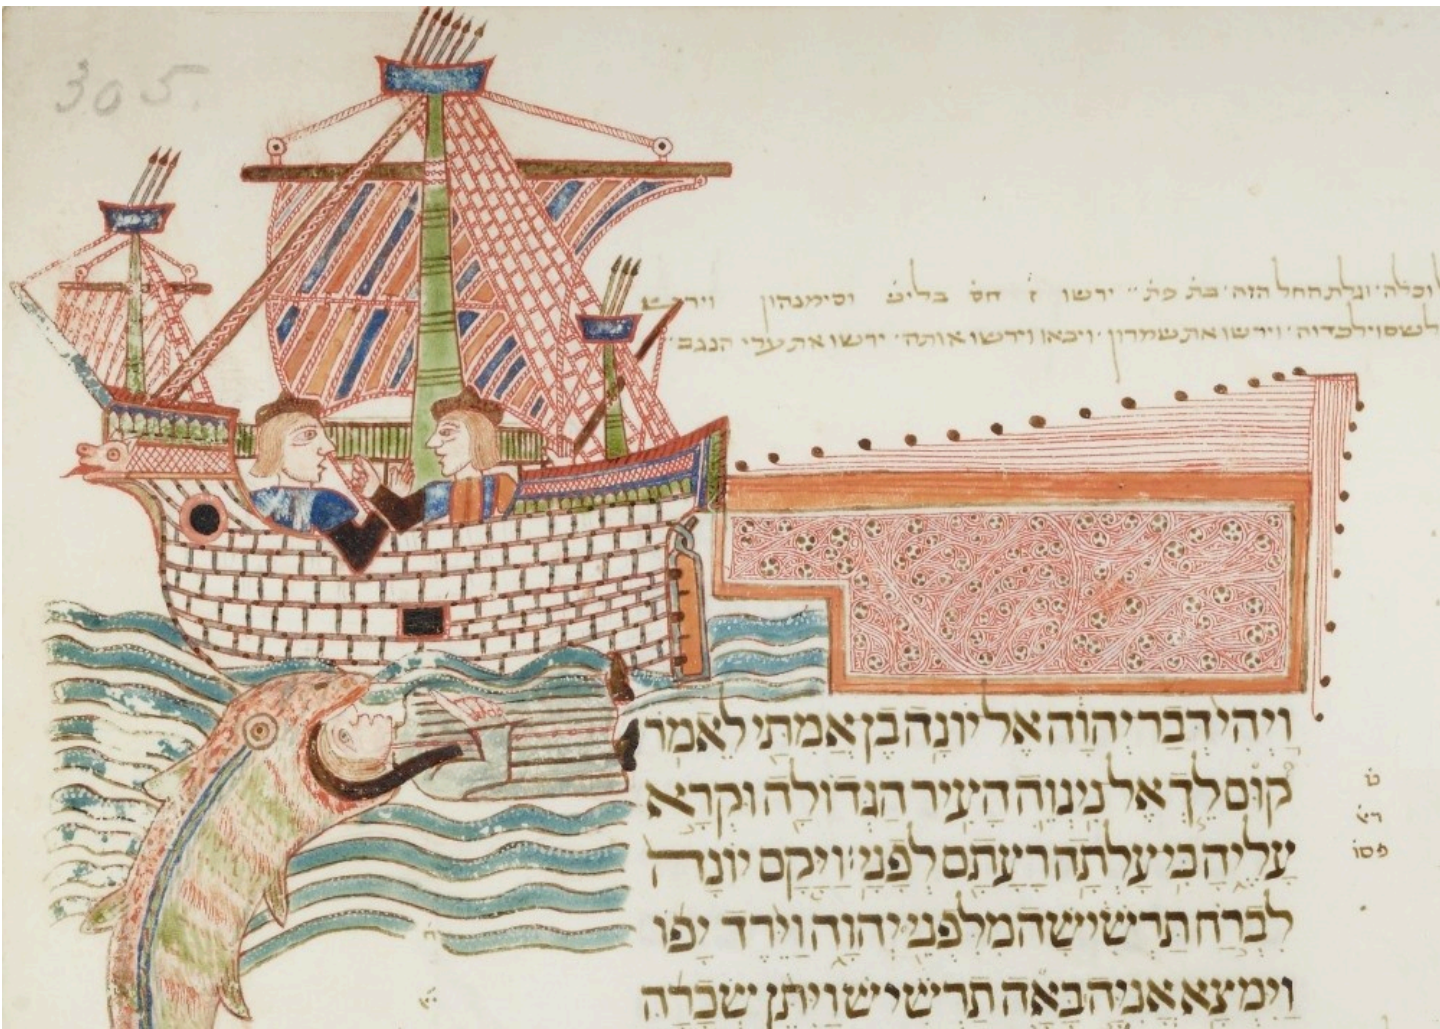 305.
הזה בת פת ירשו ז חס בליש וסימנהון וירש
וירשו את שמרון ויבאו וירשו אותה ירשו את ערי הנגב
וַיְהִי דְּבַר יְהוָה אֶל יוֹנָה בֶן אֲמִתַּי לֵאמֹר
קוּם לֵךְ אֶל נִינְוֵה הָעִיר הַגְּדוֹלָה וּקְרָא
עָלֶיהָ כִּי עָלְתָה רָעָתָם לְפָנָי׃ וַיָּקָם יוֹנָה
לִבְרֹחַ תַּרְשִׁישָׁה מִלִּפְנֵי יְהוָה וַיֵּרֶד יָפוֹ
וַיִּמְצָא אֳנִיָּה בָּאָה תַרְשִׁישׁ וַיִּתֵּן שְׂכָרָהּ